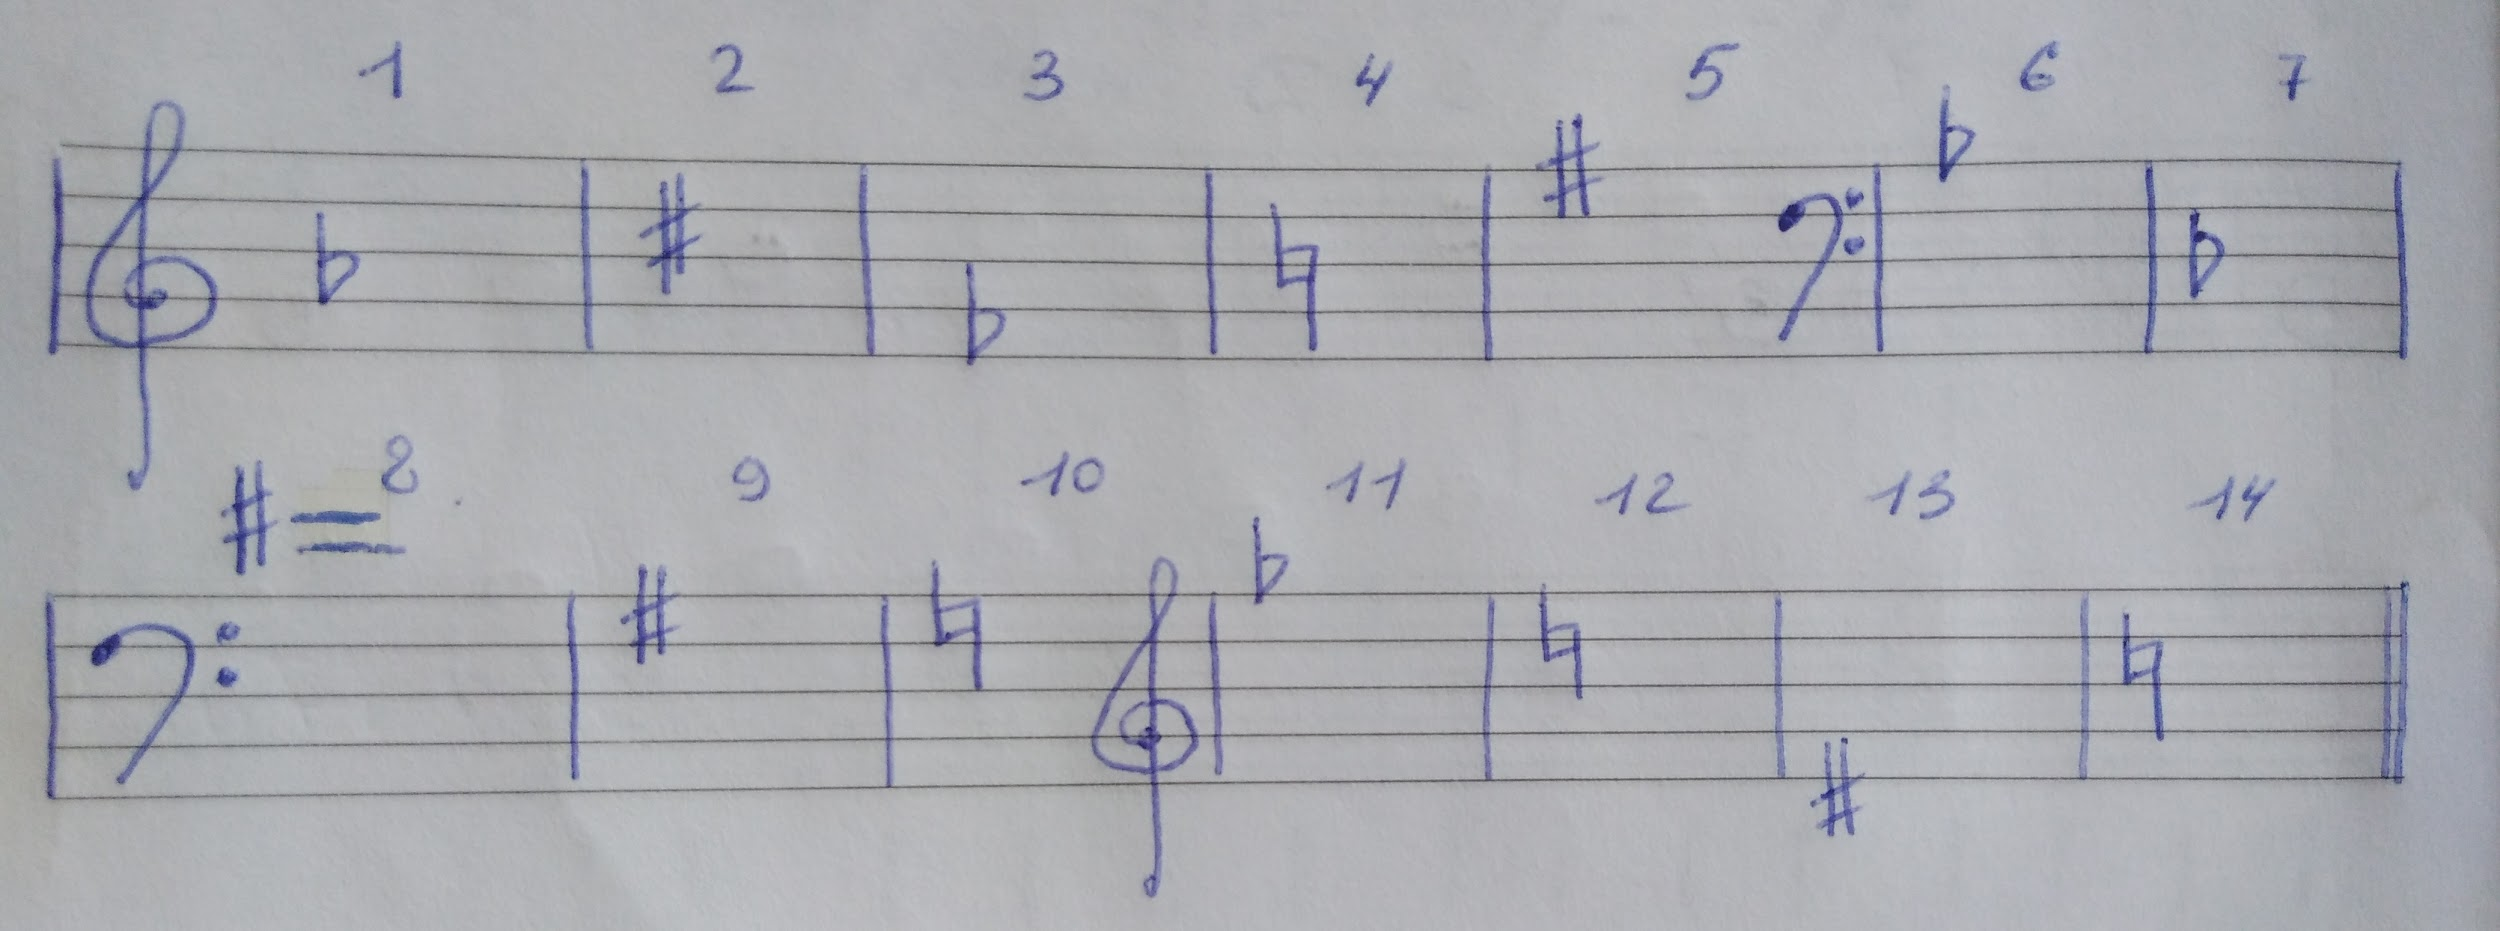 1 2 3 4 5 6 7
8 9 10 11 12 13 14